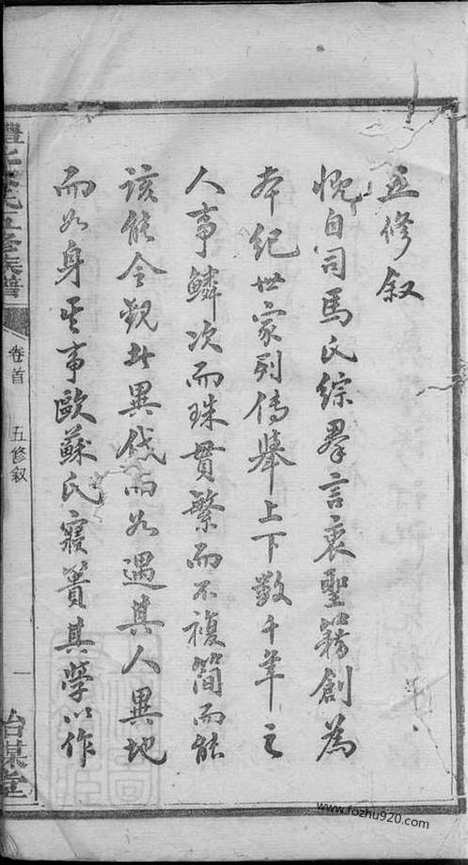 五修叙
慨自司馬氏綜羣言衷聖籍創為
本紀世家列傳舉上下数千年之
人事鱗次而珠貫繁而不複簡而能
該能令觀者異代而如遇其人異地
而如身其事歐蘇氏寢饋其學以作
氏五修族譜
卷首
五修叙
一
治謀堂
www.fozhu920.com